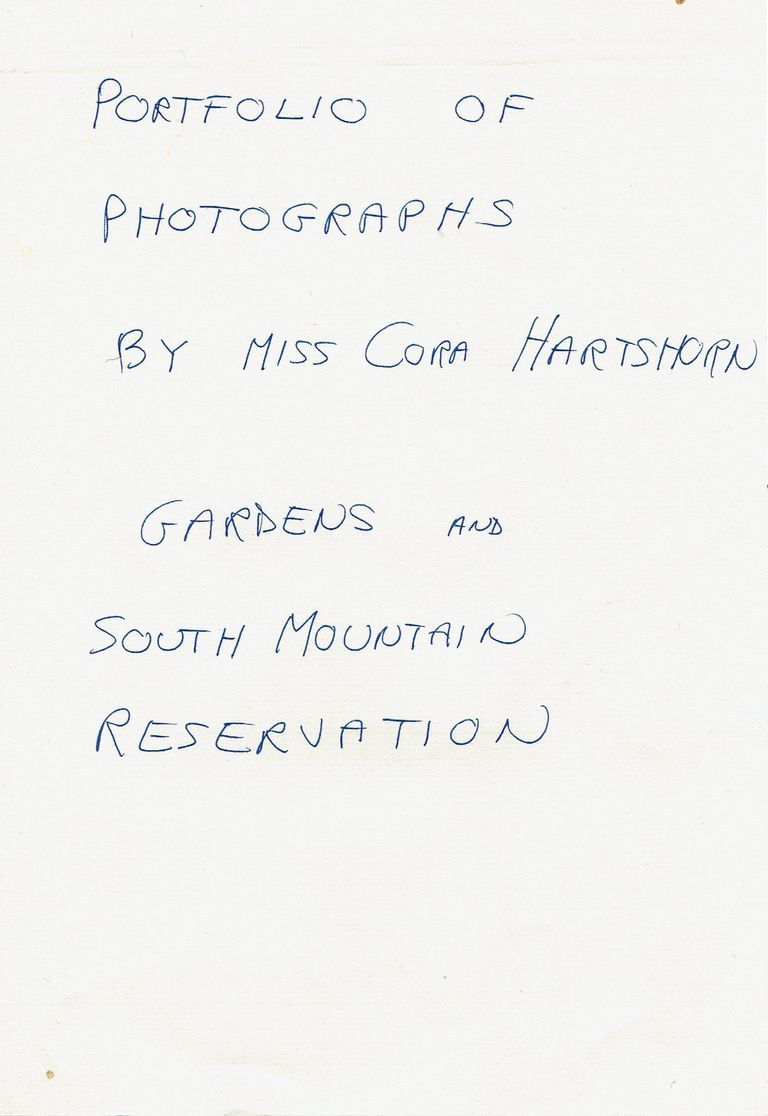 PORTFOLIO OF
PHOTOGRAPHS
BY MISS CORA HARTSHORN
GARDENS AND
SOUTH MOUNTAIN
RESERVATION